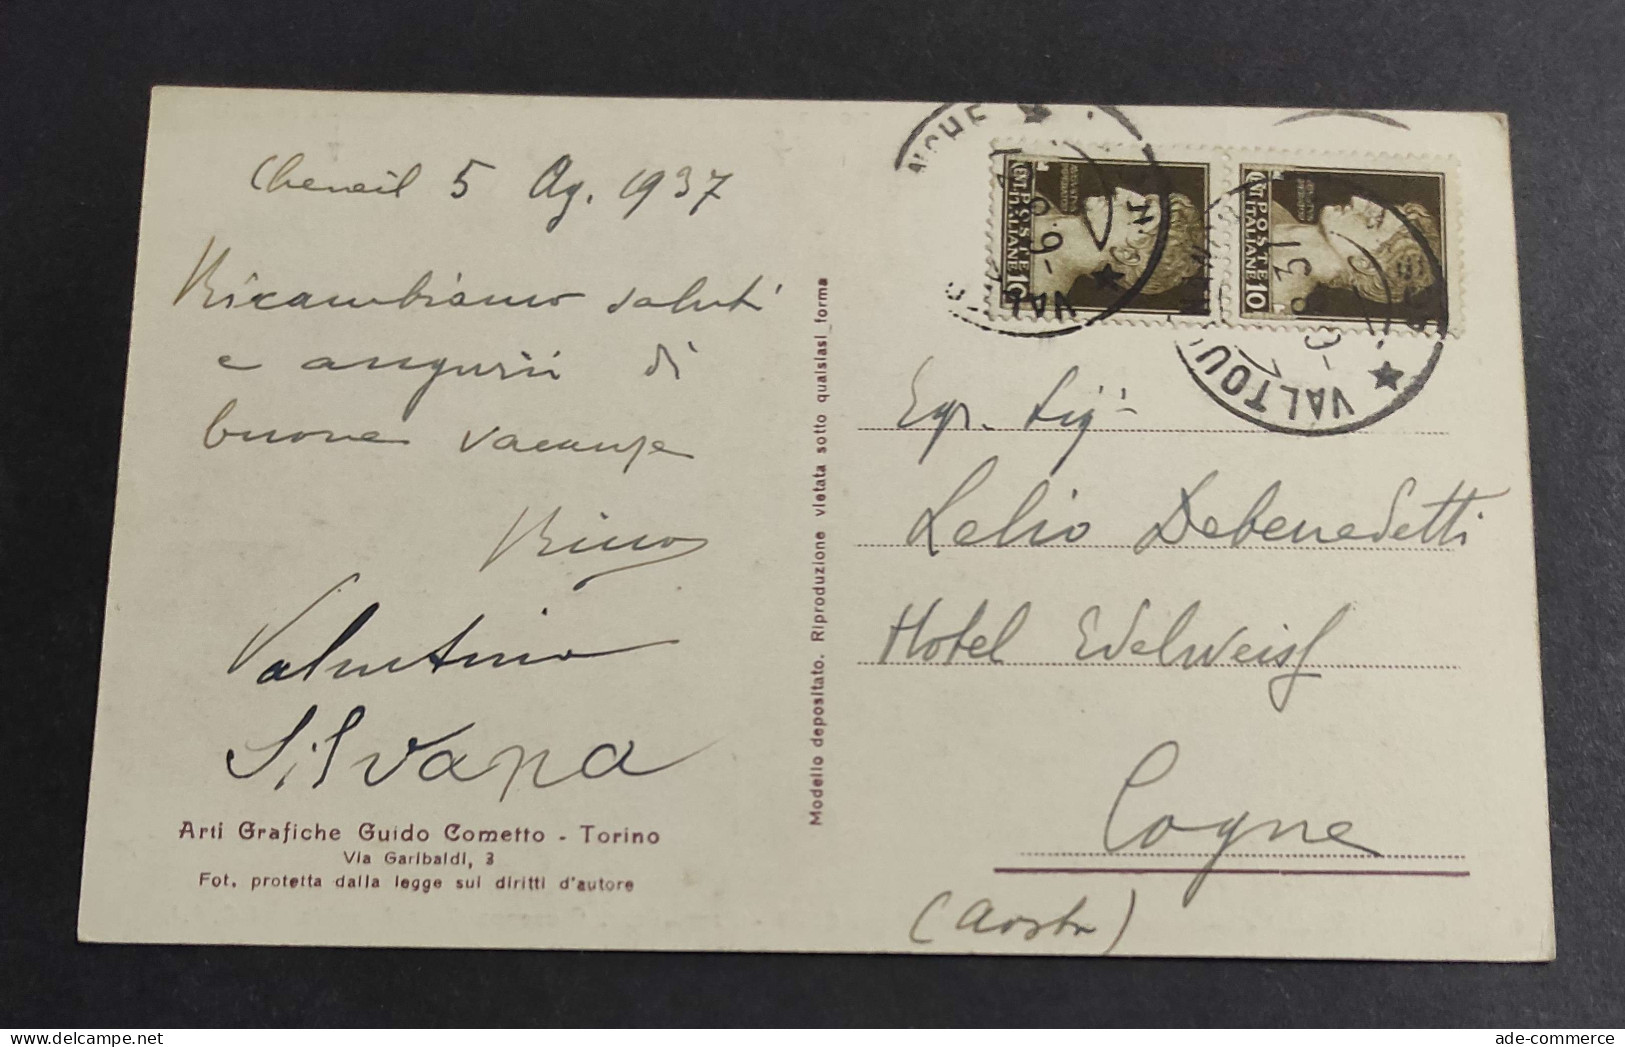 Cheneil 5 Ag. 1937
Ricambiamo saluti
e augurii di
buone vacanze
Valentina
Silvana
Arti Grafiche Guido Cometto - Torino
Via Garibaldi, 3
Fot. protetta dalla legge sui diritti d'autore
Modello depositato. Riproduzione vietata sotto qualsiasi forma
POSTE ITALIANE
CENT 10
POSTE ITALIANE
CENT 10
VALTOU
Egr. Sig.
Lelio Debenedetti
Hotel Edelweiss
Cogne
(Aosta)
ade-commerce